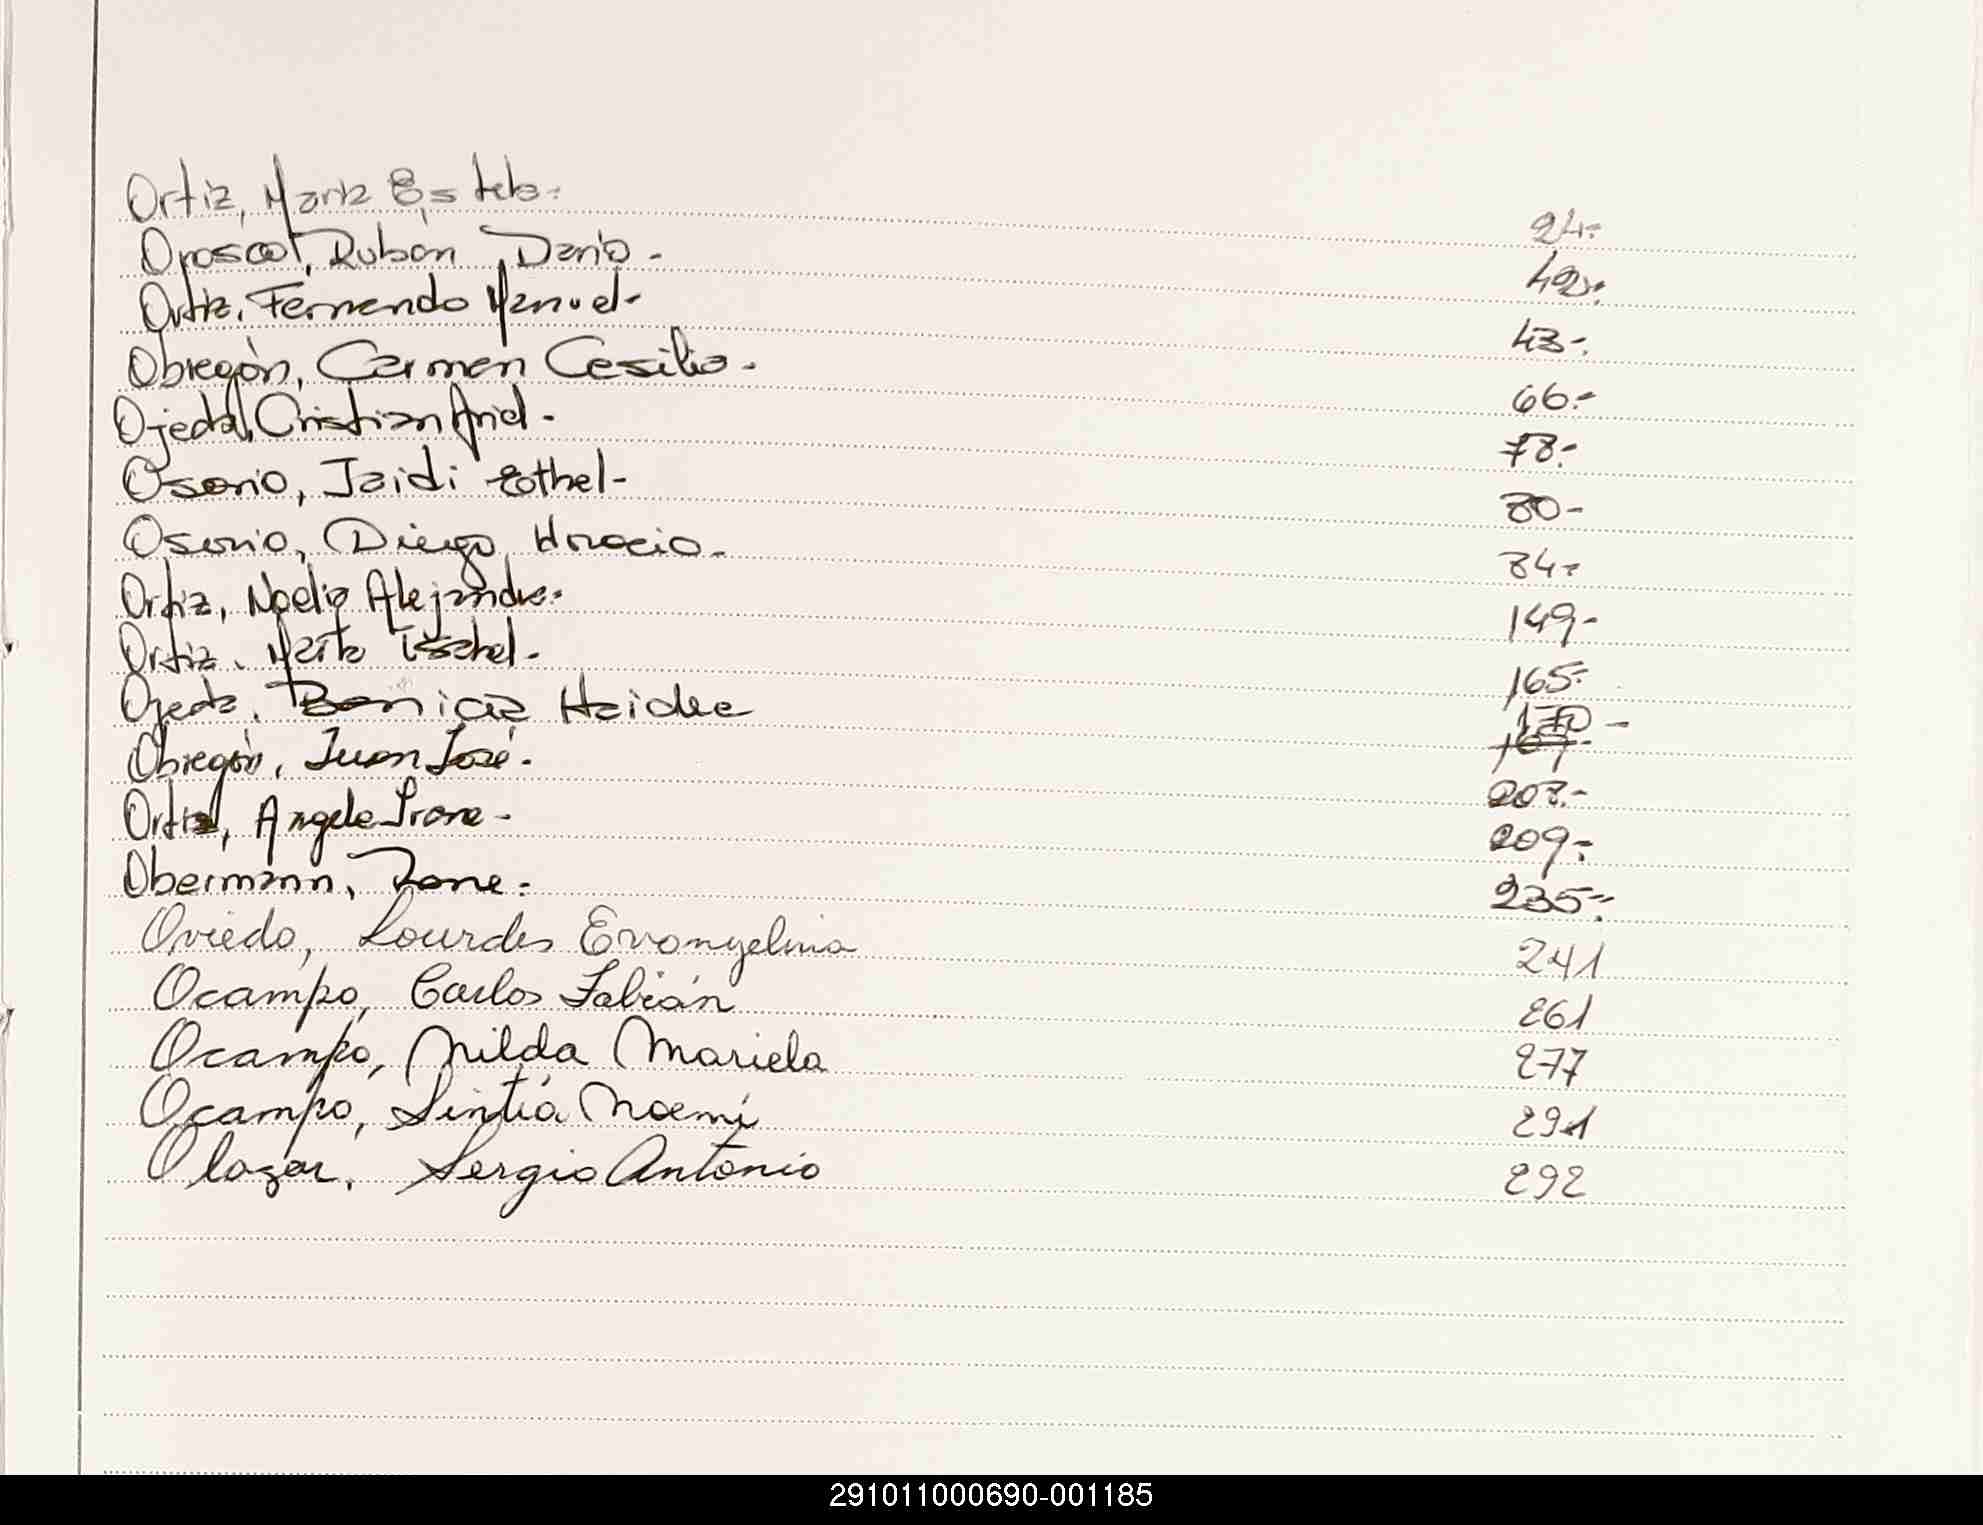 Ortiz, Maria Estela.- 24.-
Oroscot, Rubén Dario.- 42.-
Ortiz, Fernando Manuel- 43-.
Obregón, Carmen Cesilia.- 66.-
Ojeda, Cristian Ariel.- 78.-
Osorio, Jaidi Esthel- 80-
Osorio, Diego Horacio.- 84.-
Ortiz, Noelia Alejandra.- 149-
Ortiz, Marta Isabel.- 165.-
Ojeda, Haidee 170-
Obregón, Juan José.- 207.-
Ortiz, Angela Irone- 209-.
Obermann, Rone.- 235-.
Oviedo, Lourdes Evangelina 241
Ocampo, Carlos Fabián 261
Ocampo, Nilda Mariela 277
Ocampo, Sintia Noemi 291
Olazar, Sergio Antonio 292
291011000690-001185